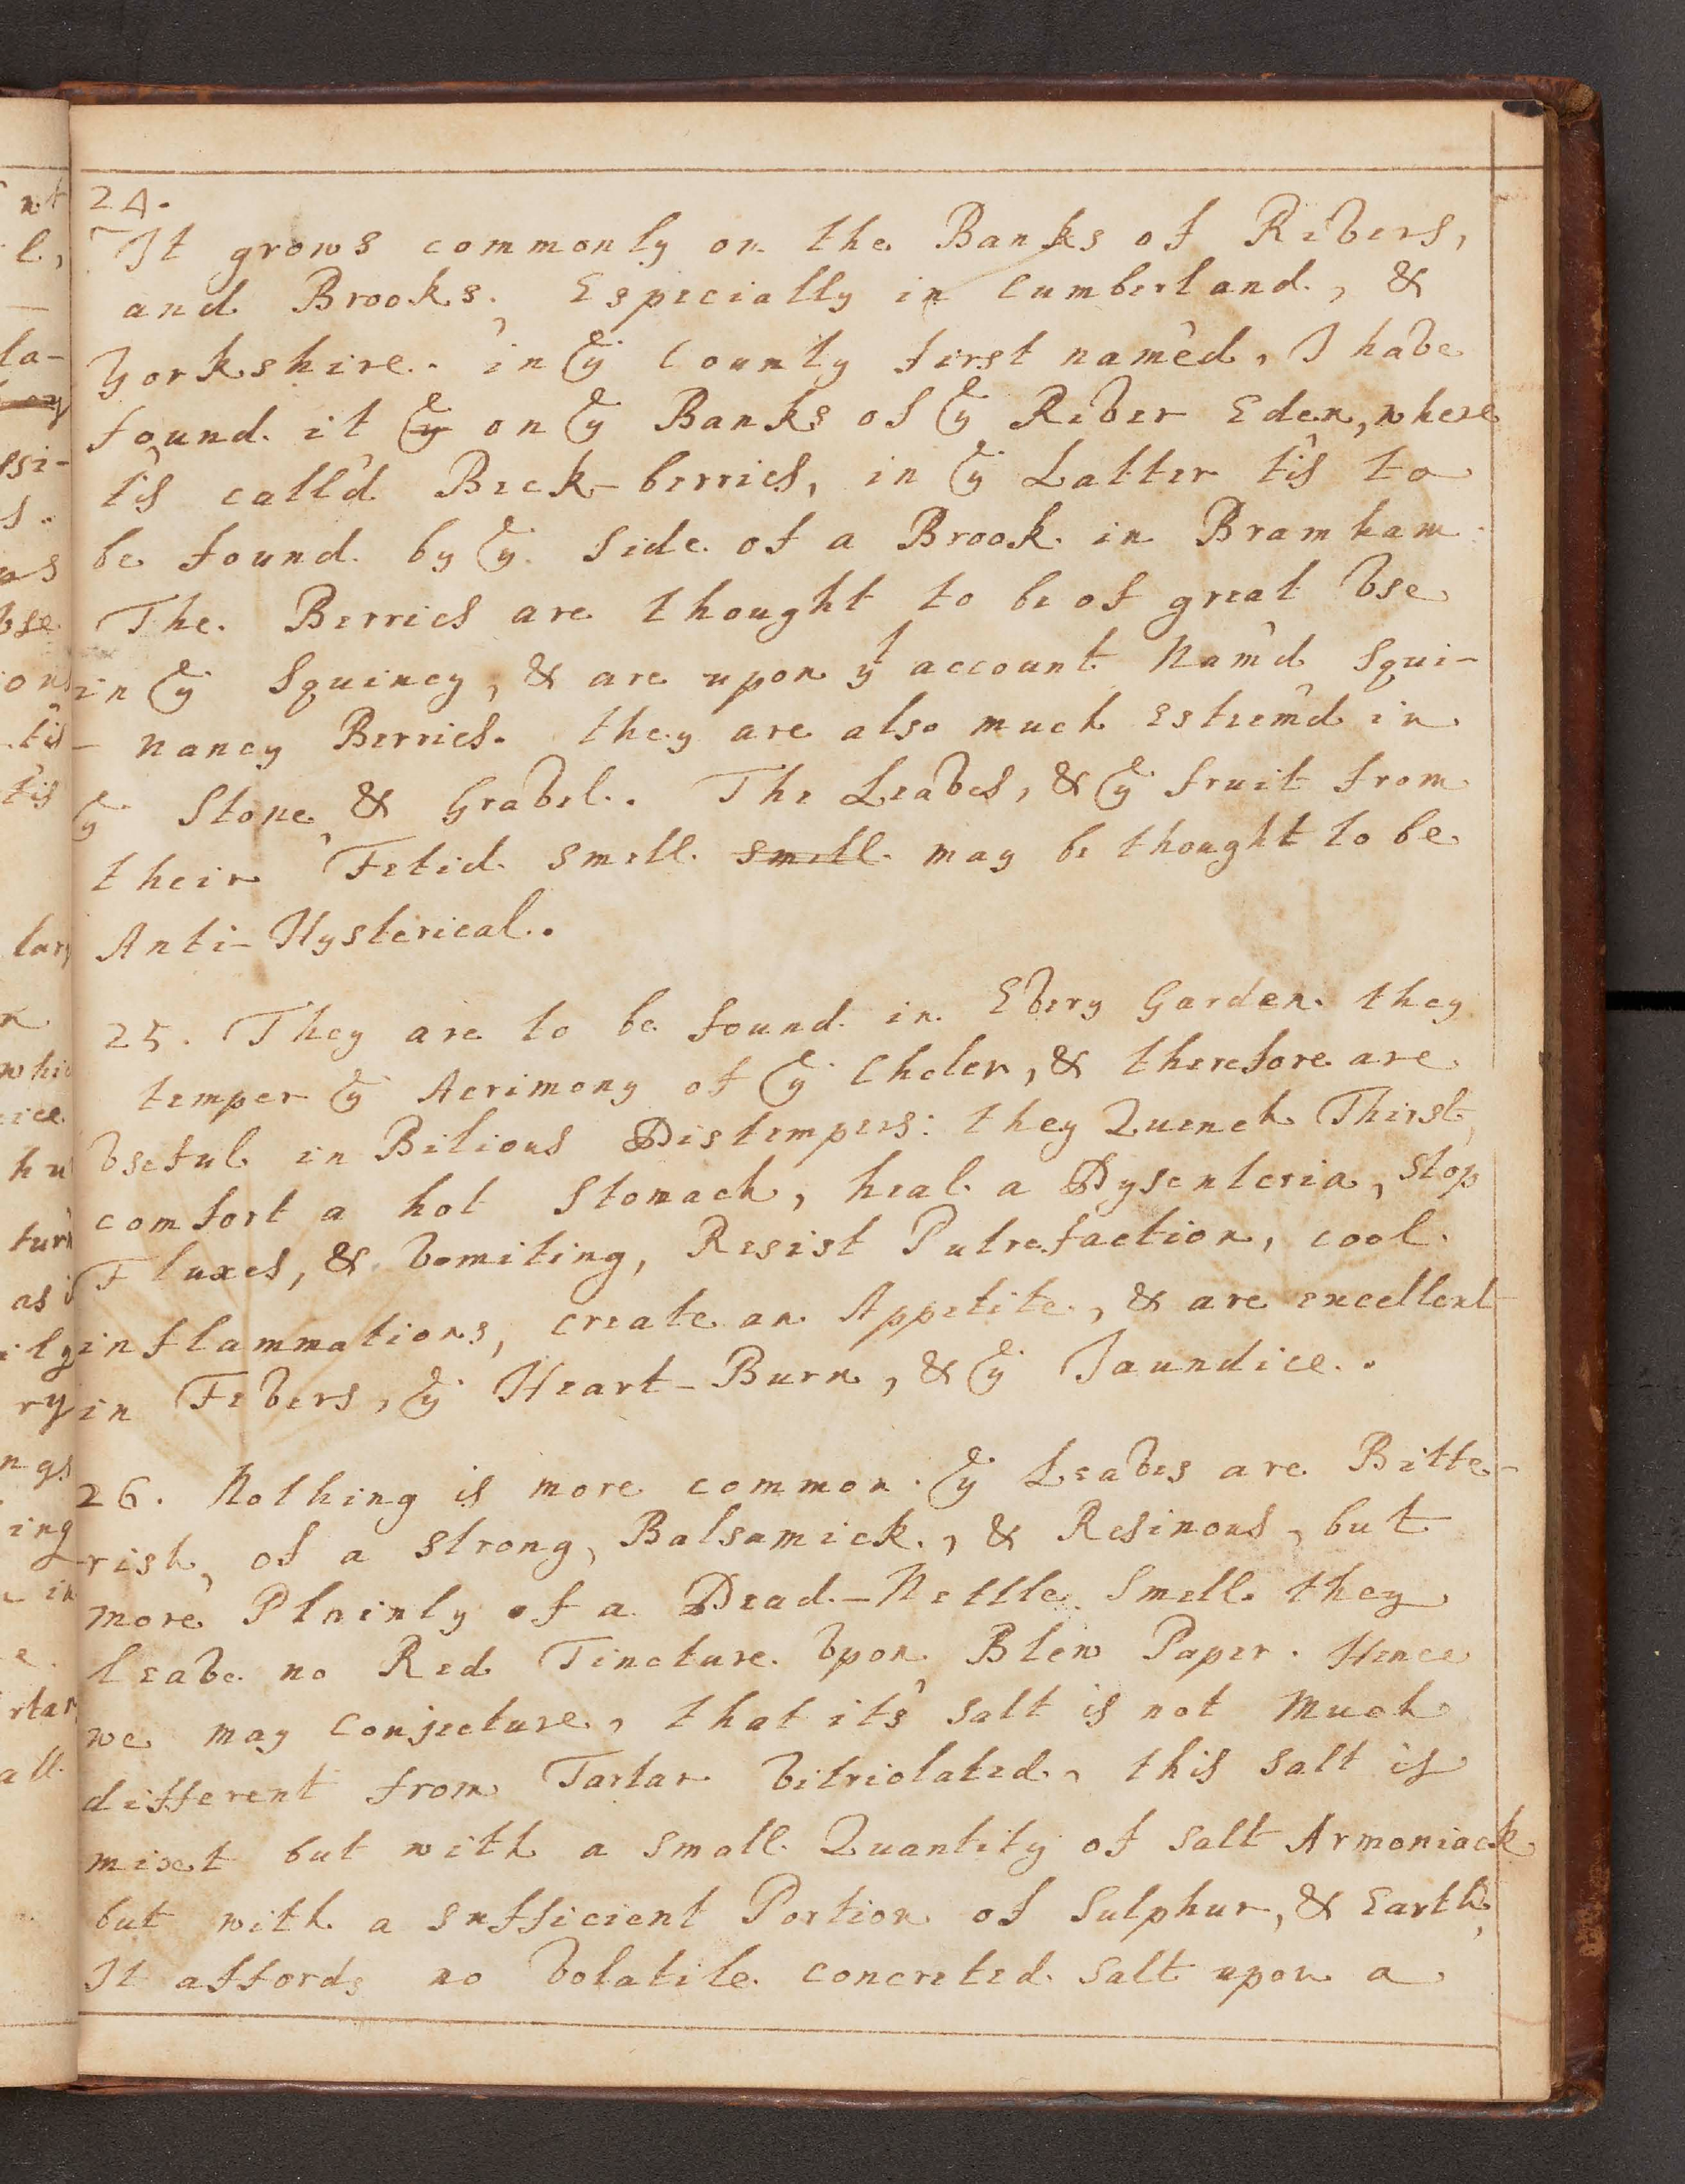 24.
It grows commonly on the Banks of Rivers,
and Brooks, Especially in Cumberland, &
Yorkshire. in yᵉ County first name'd, I have
found it yᵉ on yᵉ Banks of yᵉ River Eden, where
t'is call'd Beck-berries, in yᵉ Latter t'is to
be found by yᵉ Side of a Brook in Bramham.
The Berries are thought to be of great Vse
in yᵉ Squincy, & are upon yᵗ account Nam'd Squi-
-nancy Berries. they are also much Esteem'd in
yᵉ Stone, & Gravel. The Leaves, & yᵉ fruit from
their Fetid smell smell may be thought to be
Anti-Hysterical.
25. They are to be found in Every Garden. they
temper yᵉ Acrimony of yᵉ Choler, & therefore are
Vseful in Bilious Distempers: they Quench Thirst,
comfort a hot Stomach, heal a Dysenteria, Stop
Fluxes, & Vomiting, Resist Putrefaction, cool
inflammations, create an Appetite, & are excellent
in Fevers, yᵉ Heart-Burn, & yᵉ Jaundice.
26. Nothing is more common. yᵉ Leaves are Bitte-
-rish, of a strong, Balsamick, & Resinous, but
more Plainly of a Dead-Nettle Smell. they
leave no Red Tincture Vpon Blew Paper. Hence
we may Conjecture, that it's salt is not Much
different from Tartar Vitriolated, this Salt is
mixt but with a small Quantity of Salt Armoniack
but with a sufficient Portion of Sulphur, & Earth,
It affords no Volatile concreted Salt upon a